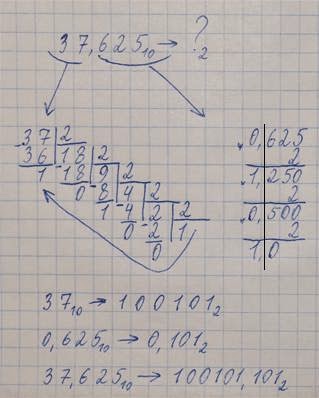 37,625₁₀ → ?₂
37 | 2
36 | 18 | 2
1 18 9 2
0 8 4 2
1 4 2 2
0 2 1
0
0,625
2
1,250
2
0,500
2
1,0
37₁₀ → 100101₂
0,625₁₀ → 0,101₂
37,625₁₀ → 100101,101₂